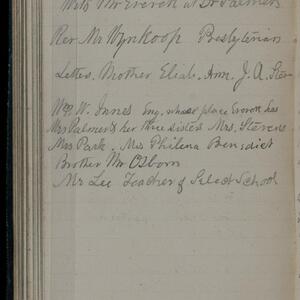 with Mr Everett at Dr Palmers
Rev. Mr Wynkoop Presbyterian
Letters. Mother Elizb. Ann. J. A. Stev
W. Innes Eng. whose place Everett has
Mrs Palmer & her three sisters Mrs. Stevens
Mrs Park. Mrs Philena Benedict
Brother Mr Osborn
Mr Lee Teacher of Select School